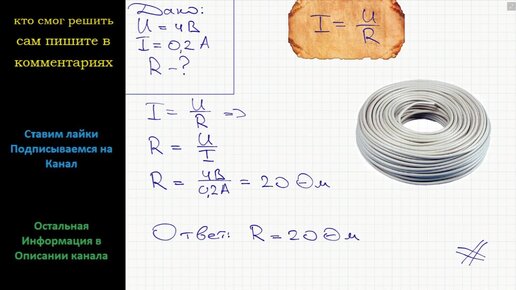 кто смог решить
сам пишите в
комментариях
Ставим лайки
Подписываемся на
Канал
Остальная
Информация в
Описании канала
Дано:
U = 4В
I = 0,2 А
R - ?
I = U/R
I = U/R =>
R = U/I
R = 4В/0,2А = 20 Ом
Ответ: R = 20 Ом